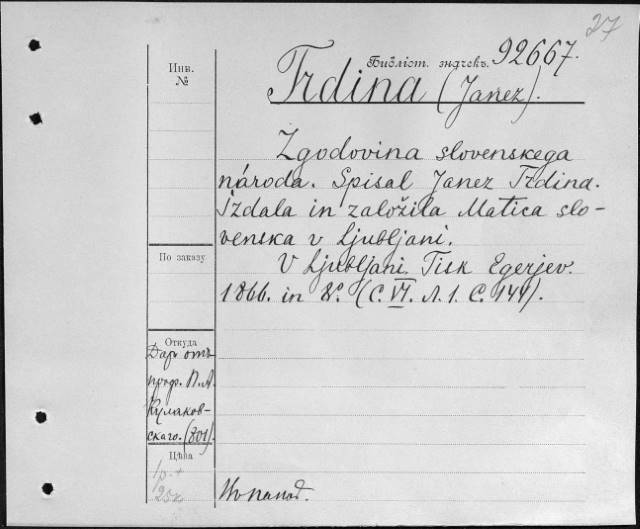 27
Библіот. значекъ. 92667.
Инв. №
Trdina (Janez).
Zgodovina slovenskega
národa. Spisal Janez Trdina.
Izdala in založila Matica slo-
venska v Ljubljani.
По заказу
V Ljubljani. Tisk Egerjev.
1866. in 8º. (C. VI. Л. 1. С. 144).
Откуда
Даръ отъ
проф. П. А.
Кулаков-
скаго. (801).
Цѣна
1 р. +
25 к.